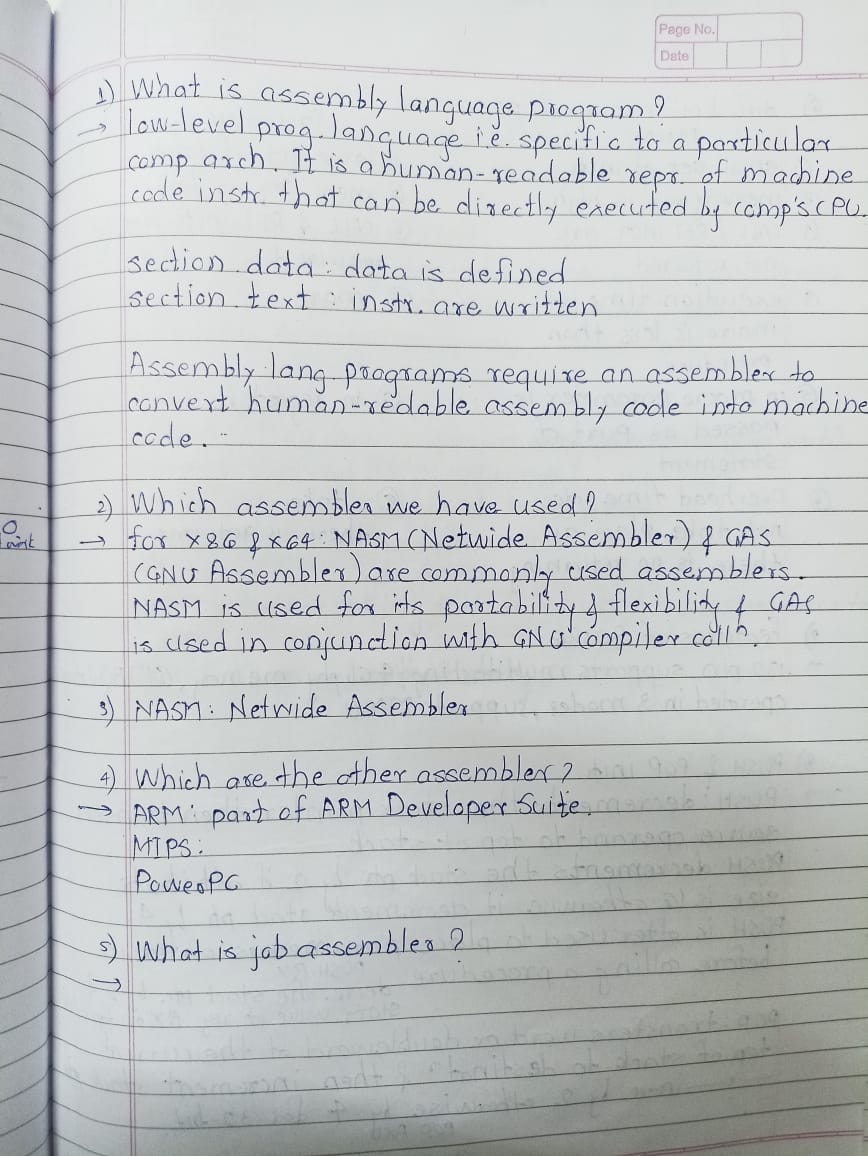 Page No.
Date
1) What is assembly language program?
→ low-level prog. language i.e. specific to a particular
comp arch. It is a human-readable repr. of machine
code instr. that can be directly executed by comp's CPU.
section .data : data is defined
section .text : instr. are written
Assembly lang programs require an assembler to
convert human-redable assembly code into machine
code.
2) Which assembler we have used?
→ for x86 & x64: NASM (Netwide Assembler) & GAS
(GNU Assembler) are commonly used assemblers.
NASM is used for its portability & flexibility & GAS
is used in conjunction with GNU compiler collⁿ.
3) NASM: Netwide Assembler
4) Which are the other assembler?
→ ARM: part of ARM Developer Suite.
MIPS:
PowerPC
5) What is job assembler?
→